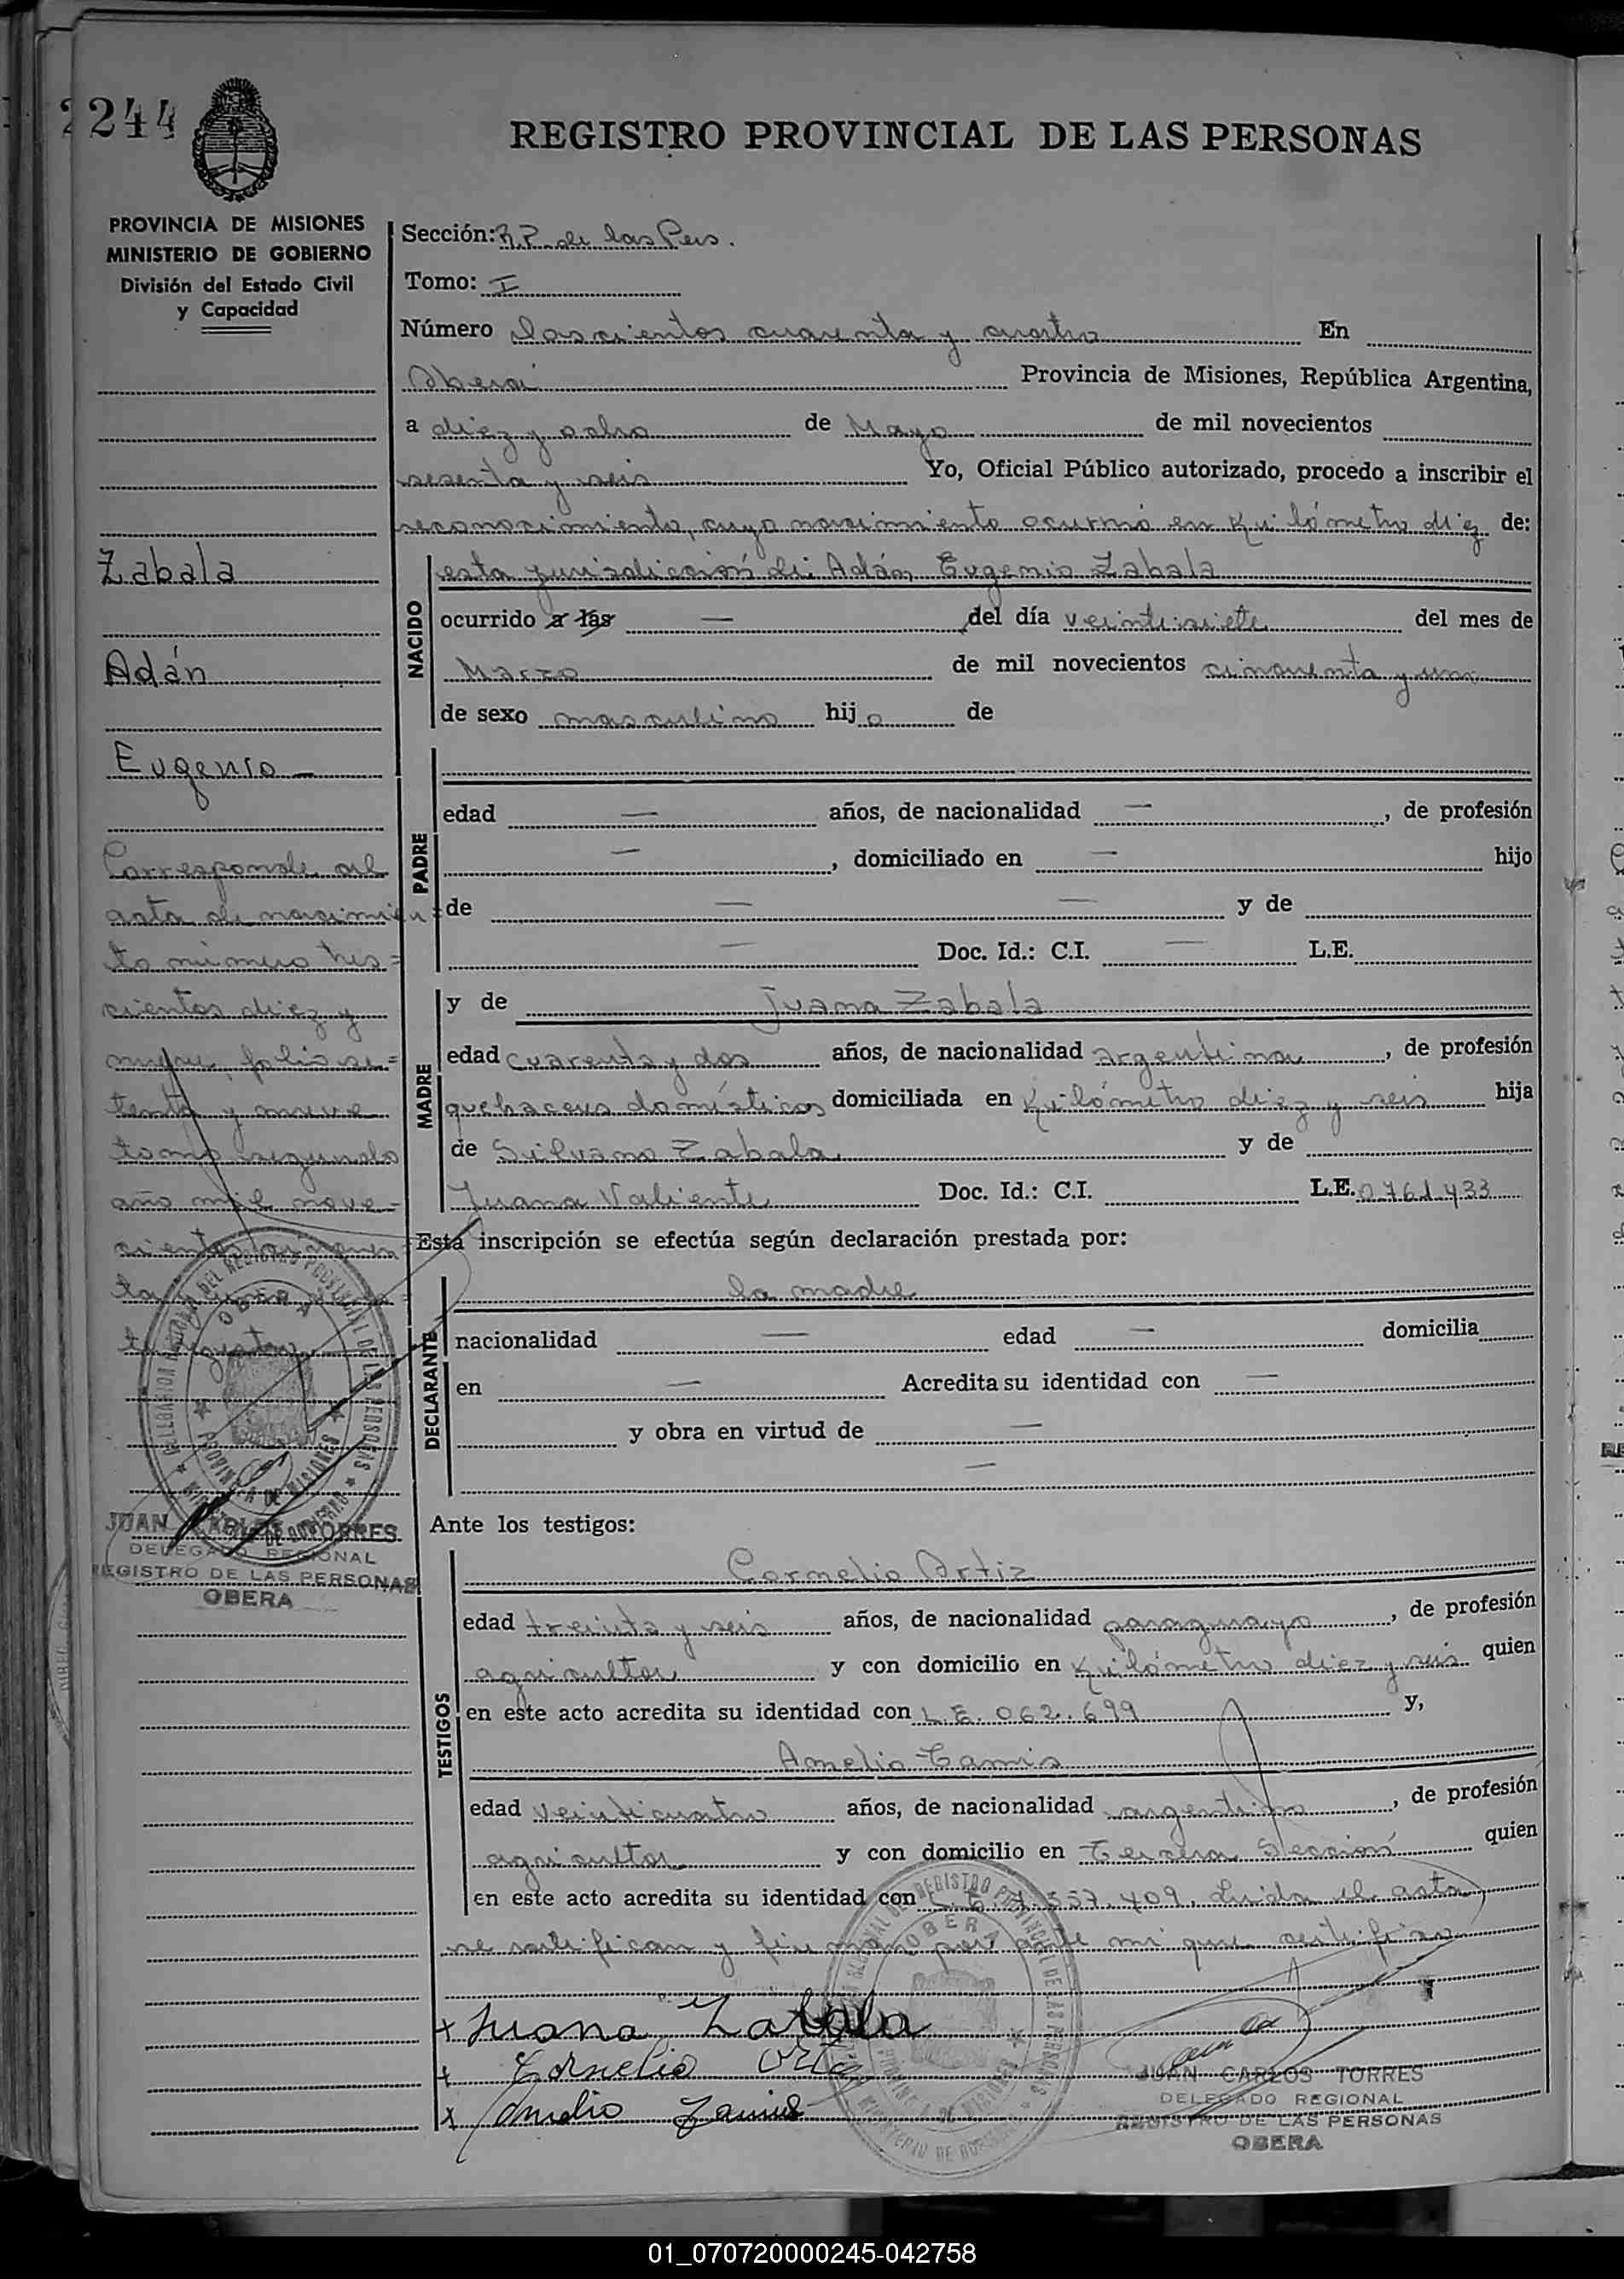 2244
REGISTRO PROVINCIAL DE LAS PERSONAS
PROVINCIA DE MISIONES
MINISTERIO DE GOBIERNO
División del Estado Civil
y Capacidad
Sección: R.P. de las Pers.
Tomo: I
Número doscientos cuarenta y cuatro En
Oberá Provincia de Misiones, República Argentina,
a diez y ocho de Mayo de mil novecientos
sesenta y seis Yo, Oficial Público autorizado, procedo a inscribir el
reconocimiento, cuyo nacimiento ocurrió en Kilómetro diez de:
Zabala
Adán
Eugenio
Corresponde al
acta de nacimien=
to número tres=
cientos diez y
nueve, folio se=
tenta y nueve
tomo segundo
año mil nove-
cientos cincuen
ta
NACIDO
esta jurisdicción de: Adán Eugenio Zabala
ocurrido a las — del día veintisiete del mes de
Marzo de mil novecientos cincuenta y uno
de sexo masculino hijo de
PADRE
edad — años, de nacionalidad —, de profesión
—, domiciliado en — hijo
de — — y de
— Doc. Id.: C.I. — L.E.
MADRE
y de Juana Zabala
edad cuarenta y dos años, de nacionalidad argentina, de profesión
quehaceres domésticos domiciliada en Kilómetro diez y seis hija
de Silvano Zabala y de
Juana Valiente Doc. Id.: C.I. L.E. 0761433
Esta inscripción se efectúa según declaración prestada por:
DECLARANTE
la madre
nacionalidad — edad — domicilia
en — Acredita su identidad con —
y obra en virtud de —
—
Ante los testigos:
TESTIGOS
Cornelio Ortiz
edad treinta y seis años, de nacionalidad paraguayo, de profesión
agricultor y con domicilio en Kilómetro diez y seis quien
en este acto acredita su identidad con L.E. 062.699 y,
Amelio Tamis
edad veinticuatro años, de nacionalidad argentino, de profesión
agricultor y con domicilio en Tercera Sección quien
en este acto acredita su identidad con L.E. 7.557.409. Leída el acta
se ratifican y firman por ante mi que certifico
+ Juana Zabala
+ Cornelio Ortiz
x Amelio
JUAN CARLOS TORRES
DELEGADO REGIONAL
REGISTRO DE LAS PERSONAS
OBERA
JUAN CARLOS TORRES
DELEGADO REGIONAL
REGISTRO DE LAS PERSONAS
OBERA
01_070720000245-042758